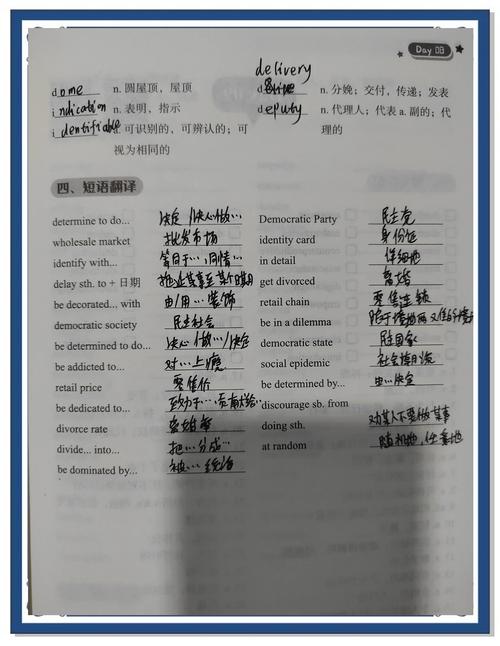 Day 08
delivery
dome n. 圆屋顶，屋顶 d n. 分娩；交付，传递；发表
indication n. 表明，指示 deputy n. 代理人；代表 a. 副的；代
identifiable 可识别的，可辨认的；可 理的
视为相同的
四、短语翻译
determine to do... 决定/决心做… Democratic Party 民主党
wholesale market 批发市场 identity card 身份证
identify with... 等同于…，同情… in detail 详细地
delay sth. to + 日期 拖延某事至某个日期 get divorced 离婚
be decorated... with 由/用…装饰 retail chain 零售连锁
democratic society 民主社会 be in a dilemma 陷于
be determined to do... 决心做…/决定 democratic state 民主国家
be addicted to... 对…上瘾 social epidemic 社会
retail price 零售价 be determined by... 由…决定
be dedicated to... 致力于… discourage sb. from
divorce rate 离婚率 doing sth. 对某人不要做某事
divide... into... 把…分成… at random 随机地，任意地
be dominated by... 被…统治